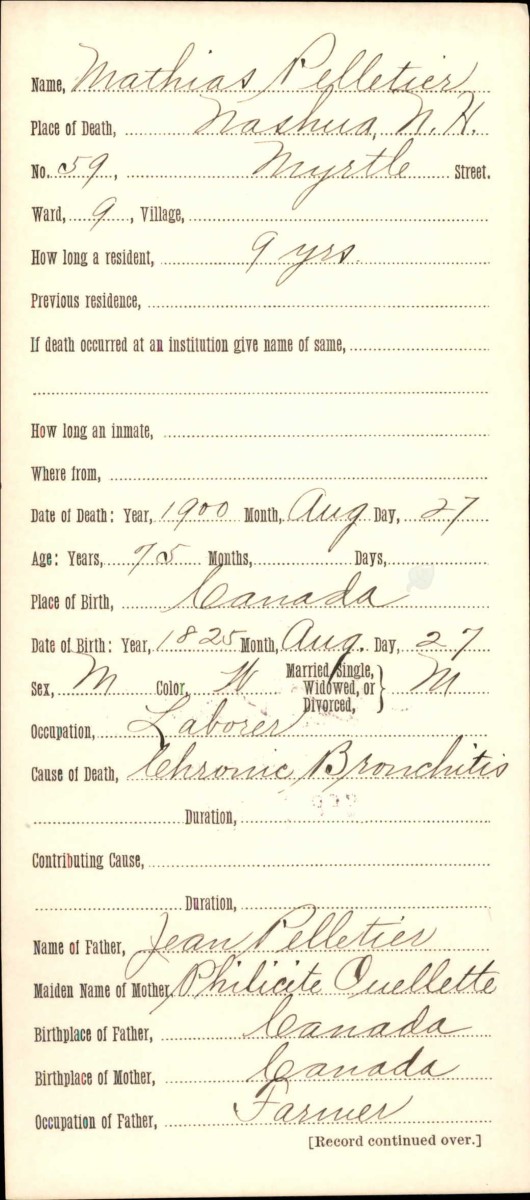 Name, Mathias Pelletier
Place of Death, Nashua, N. H.
No. 59, Myrtle Street.
Ward, 9, Village,
How long a resident, 9 yrs.
Previous residence,
If death occurred at an institution give name of same,
How long an inmate,
Where from,
Date of Death: Year, 1900 Month, Aug Day, 27
Age: Years, 75 Months, Days,
Place of Birth, Canada
Date of Birth: Year, 1825 Month, Aug. Day, 27
Sex, M Color, W Married, Single, Widowed, or Divorced, } M
Occupation, Laborer
Cause of Death, Chronic Bronchitis
Duration,
Contributing Cause,
Duration,
Name of Father, Jean Pelletier
Maiden Name of Mother, Philicite Ouellette
Birthplace of Father, Canada
Birthplace of Mother, Canada
Occupation of Father, Farmer
[Record continued over.]